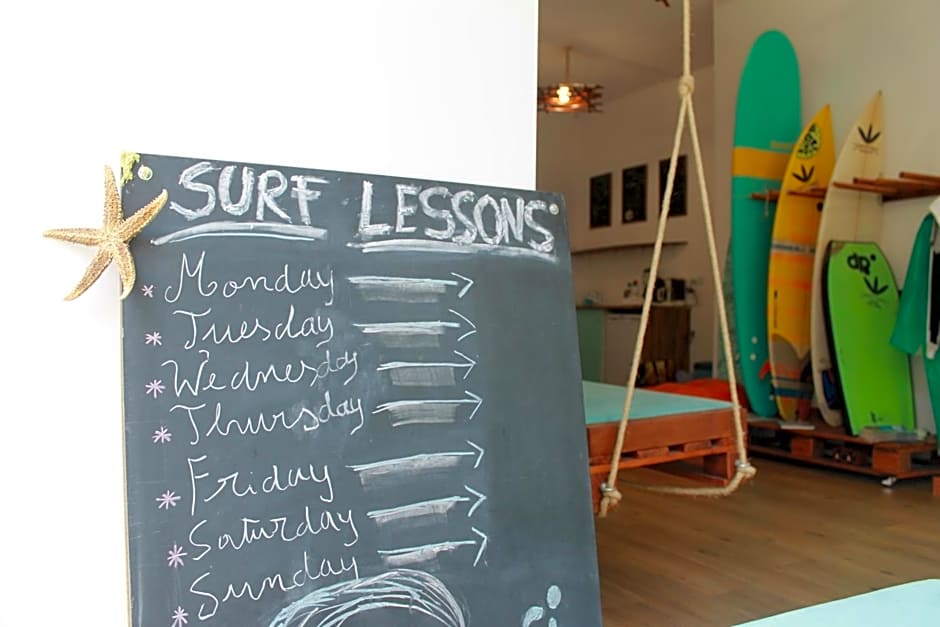 SURF LESSONS
* Monday
* Tuesday
* Wednesday
* Thursday
* Friday
* Saturday
* Sunday
dR